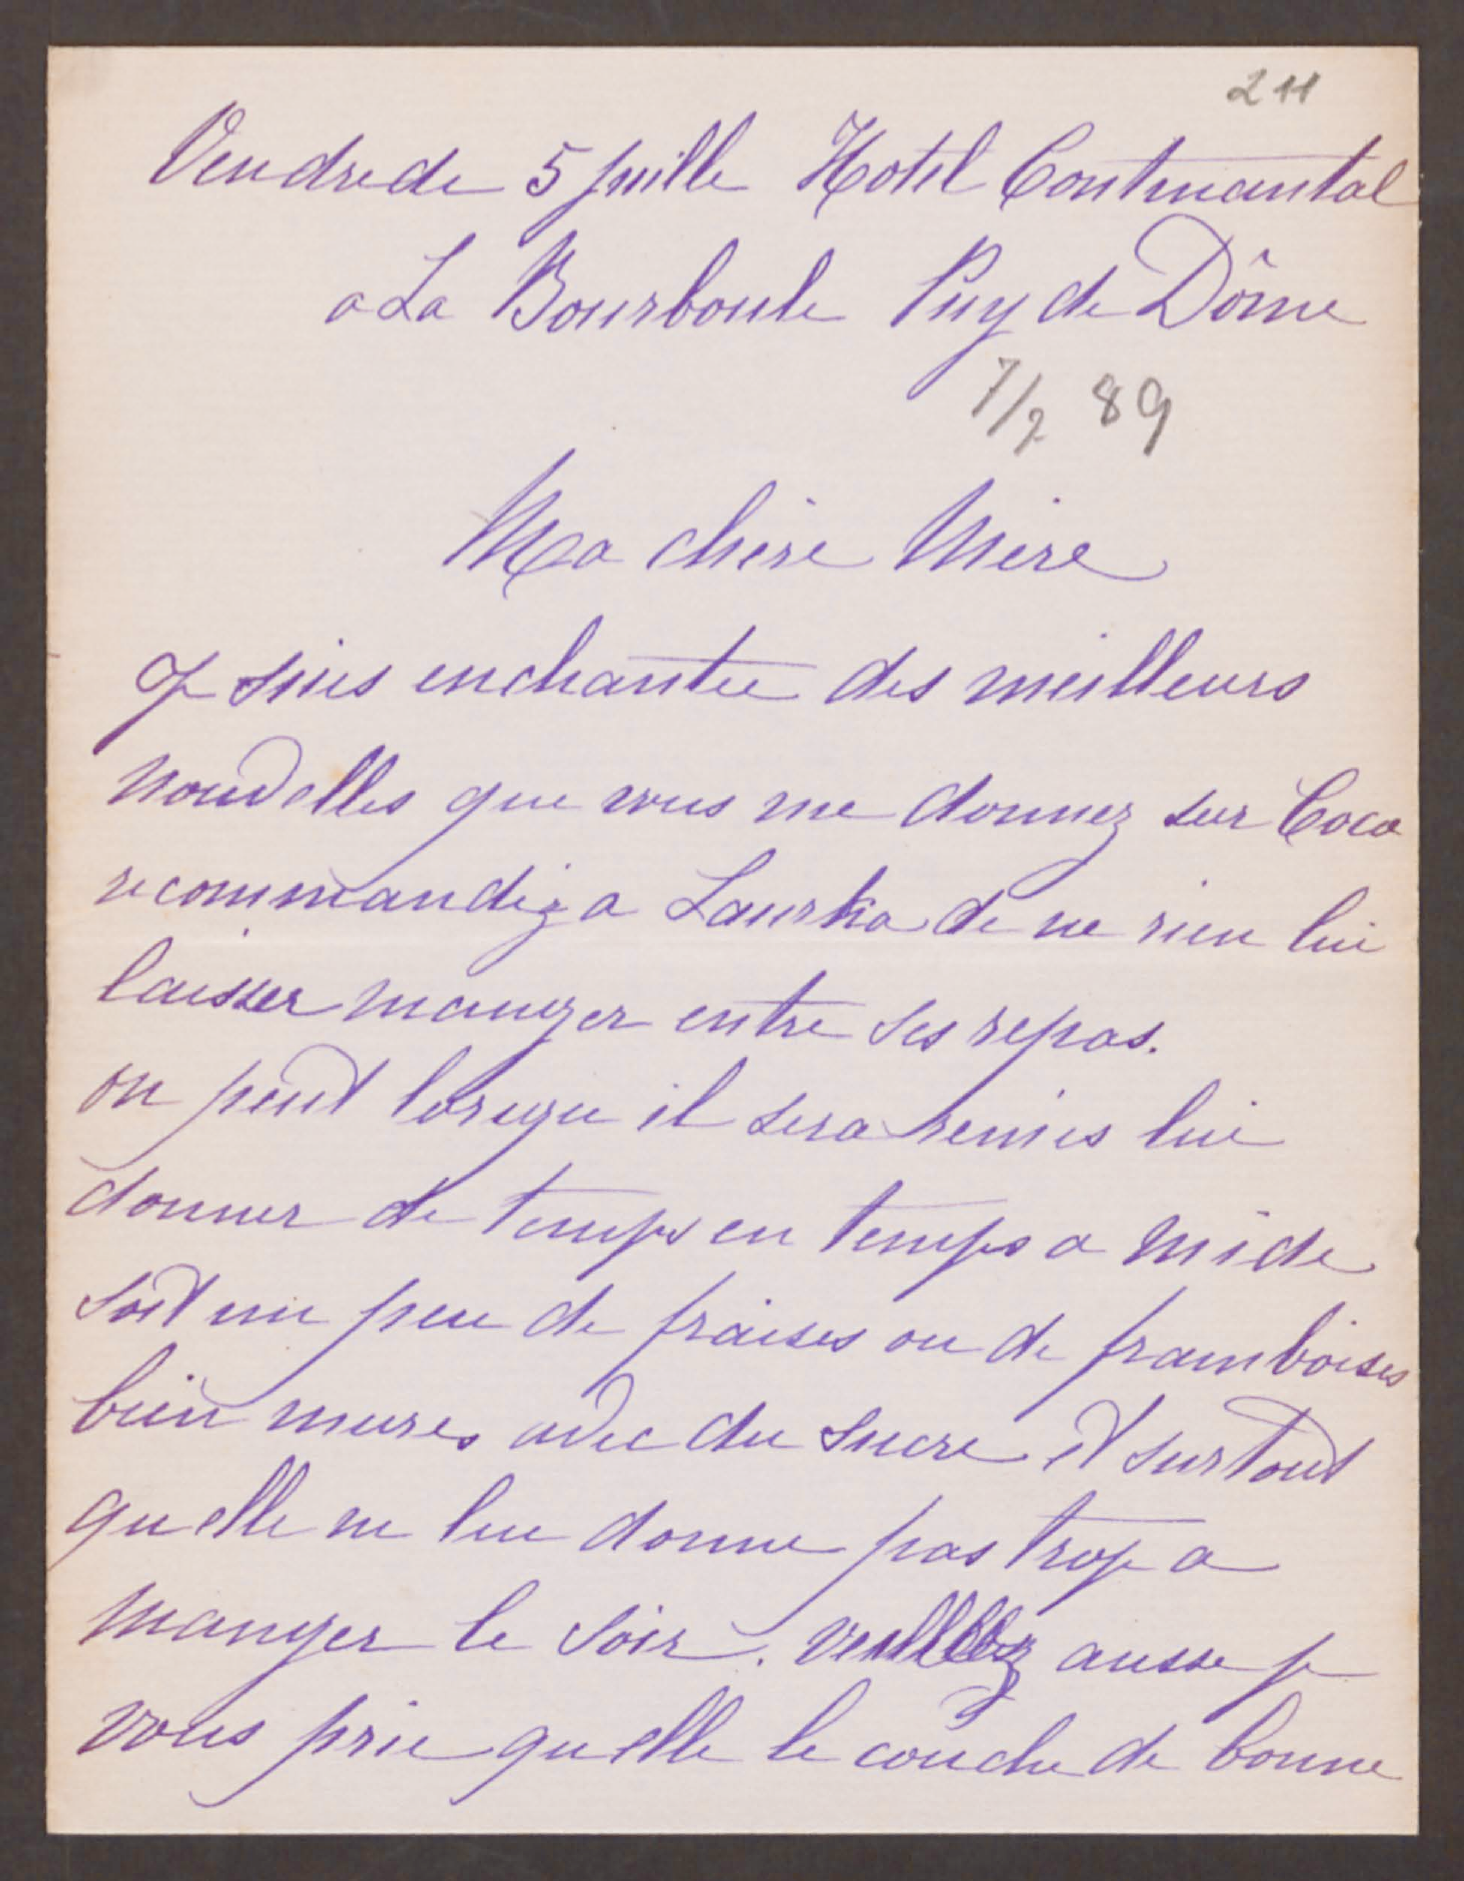 211
Vendredi 5 juille Hotel Continantal
a La Bourboule Puy de Dôme
7/7 89
Ma chère Mère
Je suis enchantée des meilleurs
nouvelles que vous me donnez sur Coco
recommandez a Laurka de ne rien lui
laisser manger entre ses repas.
on peut lorsque il sera remis lui
donner de temps en temps a midi
soit un peu de fraises ou de framboises
bien mures avec du sucre et surtout
qu elle ne lui donne pas trop a
manger le soir. veillez aussi je
vous prie qu elle le couche de bonne